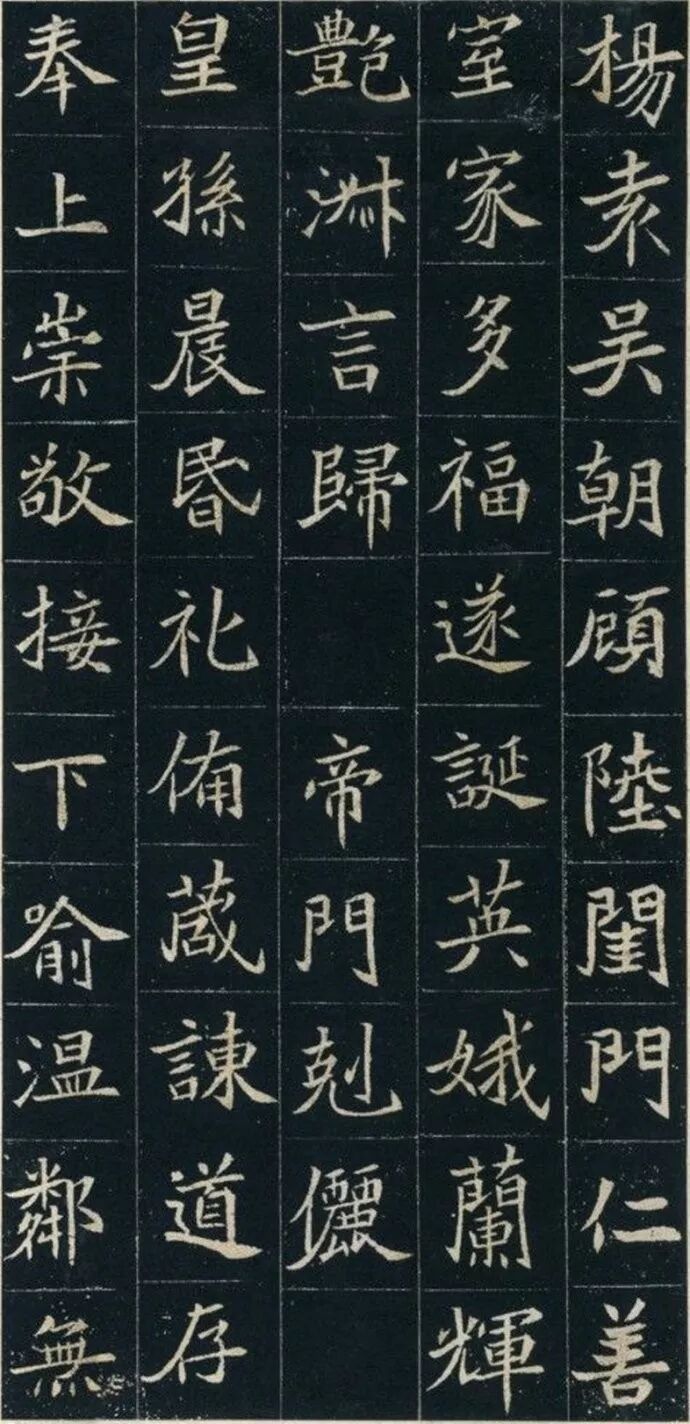 楊袁吴朝顧陸閨門仁善
室家多福遂誕英娥蘭輝
豔淋言歸 帝門剋儷
皇孫晨昏礼俻葴諌道存
奉上崇敬接下喻温鄰無